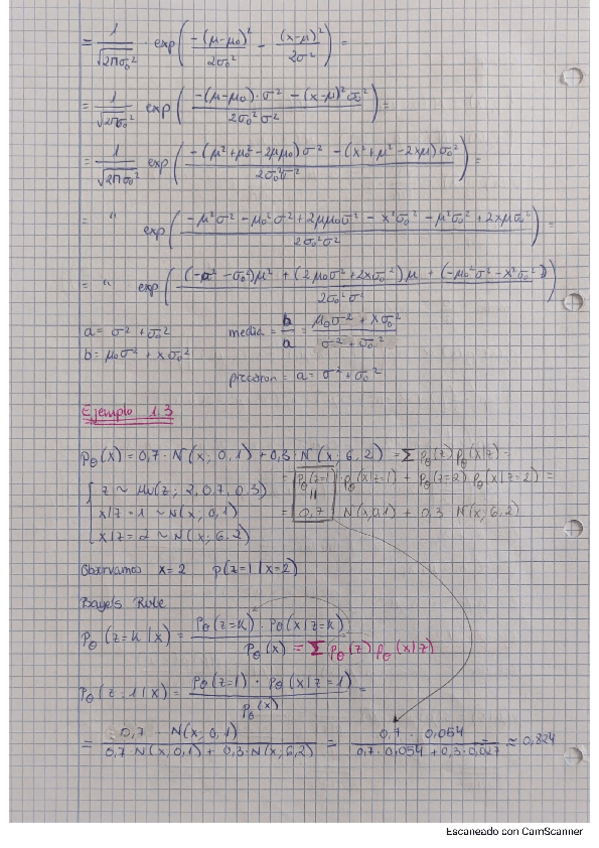 = 1/√(2πσ₀²) · exp( −(μ−μ₀)²/2σ₀² − (x−μ)²/2σ² ) =
= 1/√(2πσ₀²) exp( (−(μ−μ₀)·σ² − (x−μ)²σ₀²)/2σ₀²σ² ) =
= 1/√(2πσ₀²) exp( (−(μ²+μ₀²−2μμ₀)σ² − (x²+μ²−2xμ)σ₀²)/2σ₀²σ² ) =
= " exp( (−μ²σ² − μ₀²σ² + 2μμ₀σ² − x²σ₀² − μ²σ₀² + 2xμσ₀²)/2σ₀²σ² ) =
= " exp( ((−σ² − σ₀²)μ² + (2μ₀σ² + 2xσ₀²)μ + (−μ₀²σ² − x²σ₀²))/2σ₀²σ² )
a = σ² + σ₀² media = b/a = (μ₀σ² + xσ₀²)/(σ² + σ₀²)
b = μ₀σ² + xσ₀²
precision = a = σ² + σ₀²
Ejemplo 1.3
pθ(x) = 0,7 · N(x; 0,1) + 0,3 · N(x; 6,2) = Σ pθ(z) pθ(x|z) =
{ z ~ Mu(z; 2, 0.7, 0.3) = pθ(z=1) · pθ(x|z=1) + pθ(z=2) pθ(x|z=2) =
x|z = 1 ~ N(x; 0,1) = 0,7 N(x,0,1) + 0,3 N(x; 6,2)
x|z = 2 ~ N(x; 6,2)
Observamos x=2 p(z=1|x=2)
Baye's Rule
pθ(z=k|x) = pθ(z=k) · pθ(x|z=k) / pθ(x) = Σ pθ(z) pθ(x|z)
pθ(z=1|x) = pθ(z=1) · pθ(x|z=1) / pθ(x) =
= 0,7 · N(x; 0,1) / (0,7 N(x,0,1) + 0,3·N(x; 6,2)) = 0,7 · 0,054 / (0,7·0,054 + 0,3·0,027) ≈ 0,824
Escaneado con CamScanner